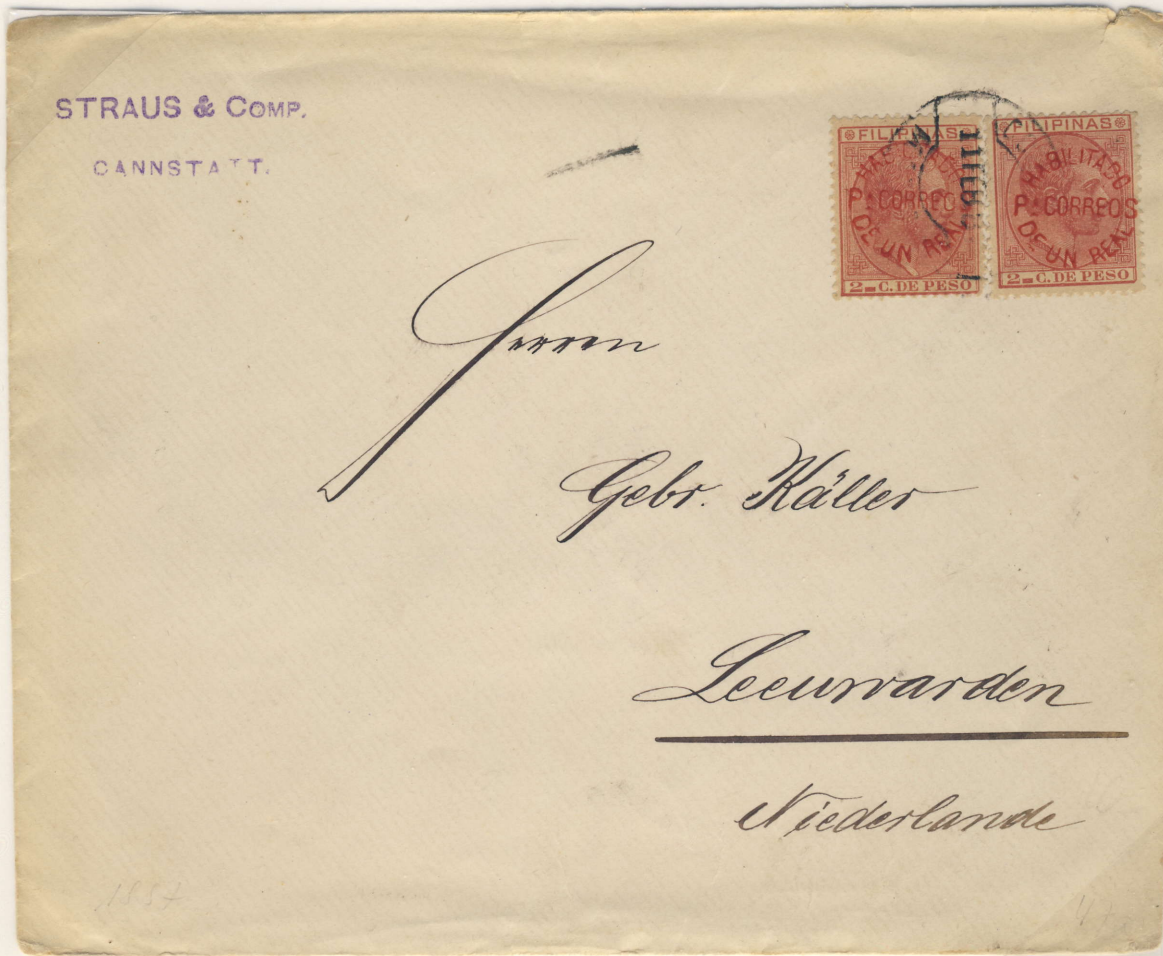 STRAUS & COMP.
CANNSTATT.
FILIPINAS
HABILITADO
Pª CORREOS
DE UN REAL
2 C. DE PESO
FILIPINAS
HABILITADO
Pª CORREOS
DE UN REAL
2 C. DE PESO
Herren
Gebr. Käller
Leeuwarden
Niederlande
1887